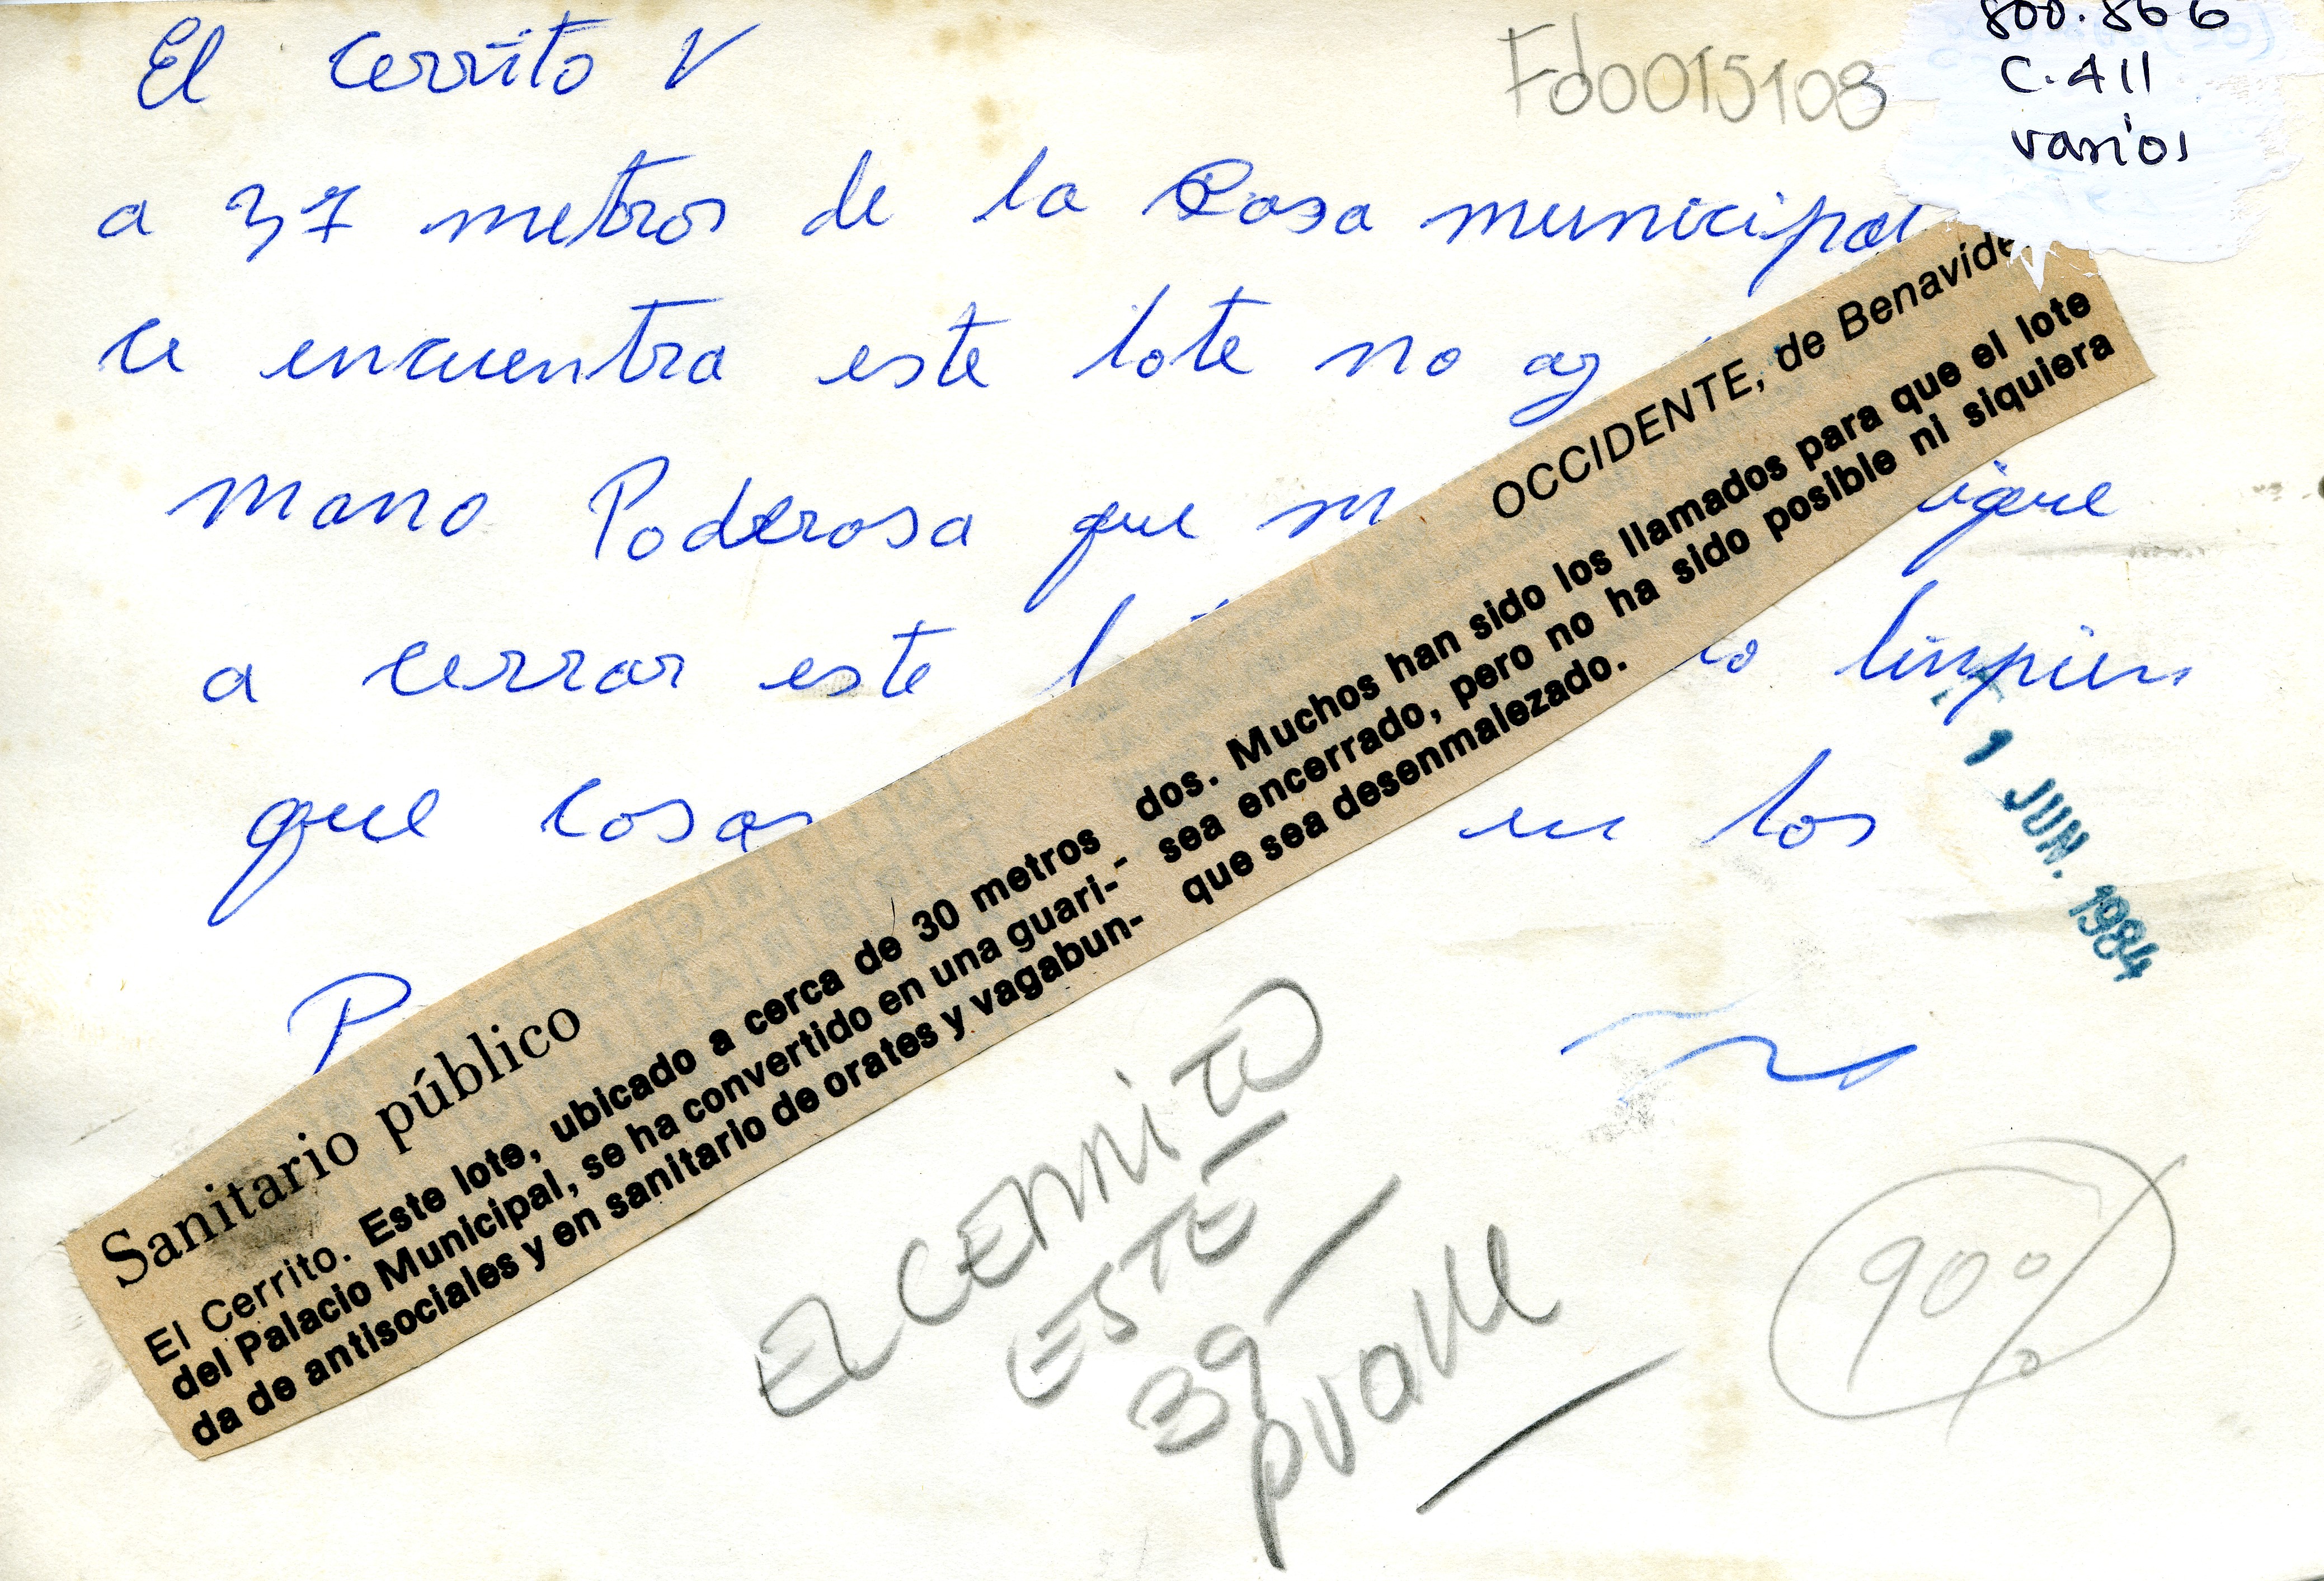 El Cerrito V
Fd0015108
800.866
C.411
varios
a 37 metros de la Casa municipal
ce encuentra este lote no
mano Poderosa que
a cerrar este
limpien
que cosas
en los
OCCIDENTE, de Benavide
Sanitario público
El Cerrito. Este lote, ubicado a cerca de 30 metros
del Palacio Municipal, se ha convertido en una guari-
da de antisociales y en sanitario de orates y vagabun-
dos. Muchos han sido los llamados para que el lote
sea encerrado, pero no ha sido posible ni siquiera
que sea desenmalezado.
1 JUN. 1984
EL CERRITO
ESTE
39
90%